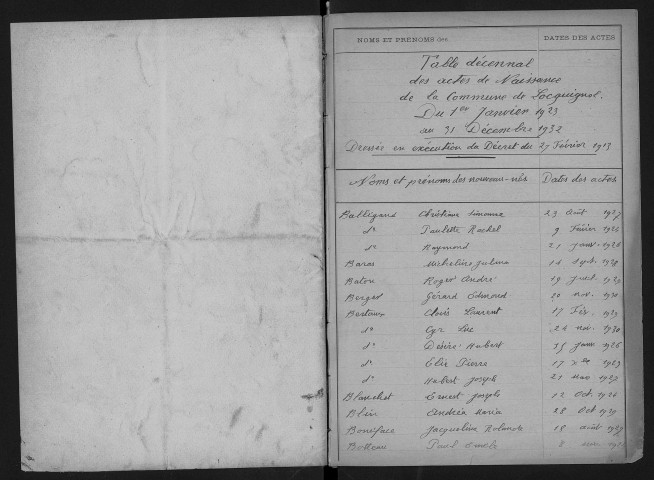 NOMS ET PRÉNOMS des DATES DES ACTES
Table décennal
des actes de Naissance
de la Commune de Locquignol.
Du 1er Janvier 1923
au 31 Décembre 1932
Dressée en exécution du Décret du 27 Février 1913
Noms et prénoms des nouveaux-nés Dates des actes
Christiane Simonne 23 août 1927
do Paulette Rachel 9 Février
do Raymond 21 janv.
Baras Micheline
Baton Roger André 19 juil.
Gérard Edmond 20 nov. 1930
Bertaux Clovis Laurent 17 Fév.
do Cyr Luc 24 nov. 1930
do Désiré Hubert 15 janv 1926
do Elie Pierre 17
do Hubert Joseph 21
Blanchet Ernest Joseph 12 Oct
Blin Andréa Maria 28 Oct
Boniface Jacqueline Rolande 18 août
Paul Emile 8